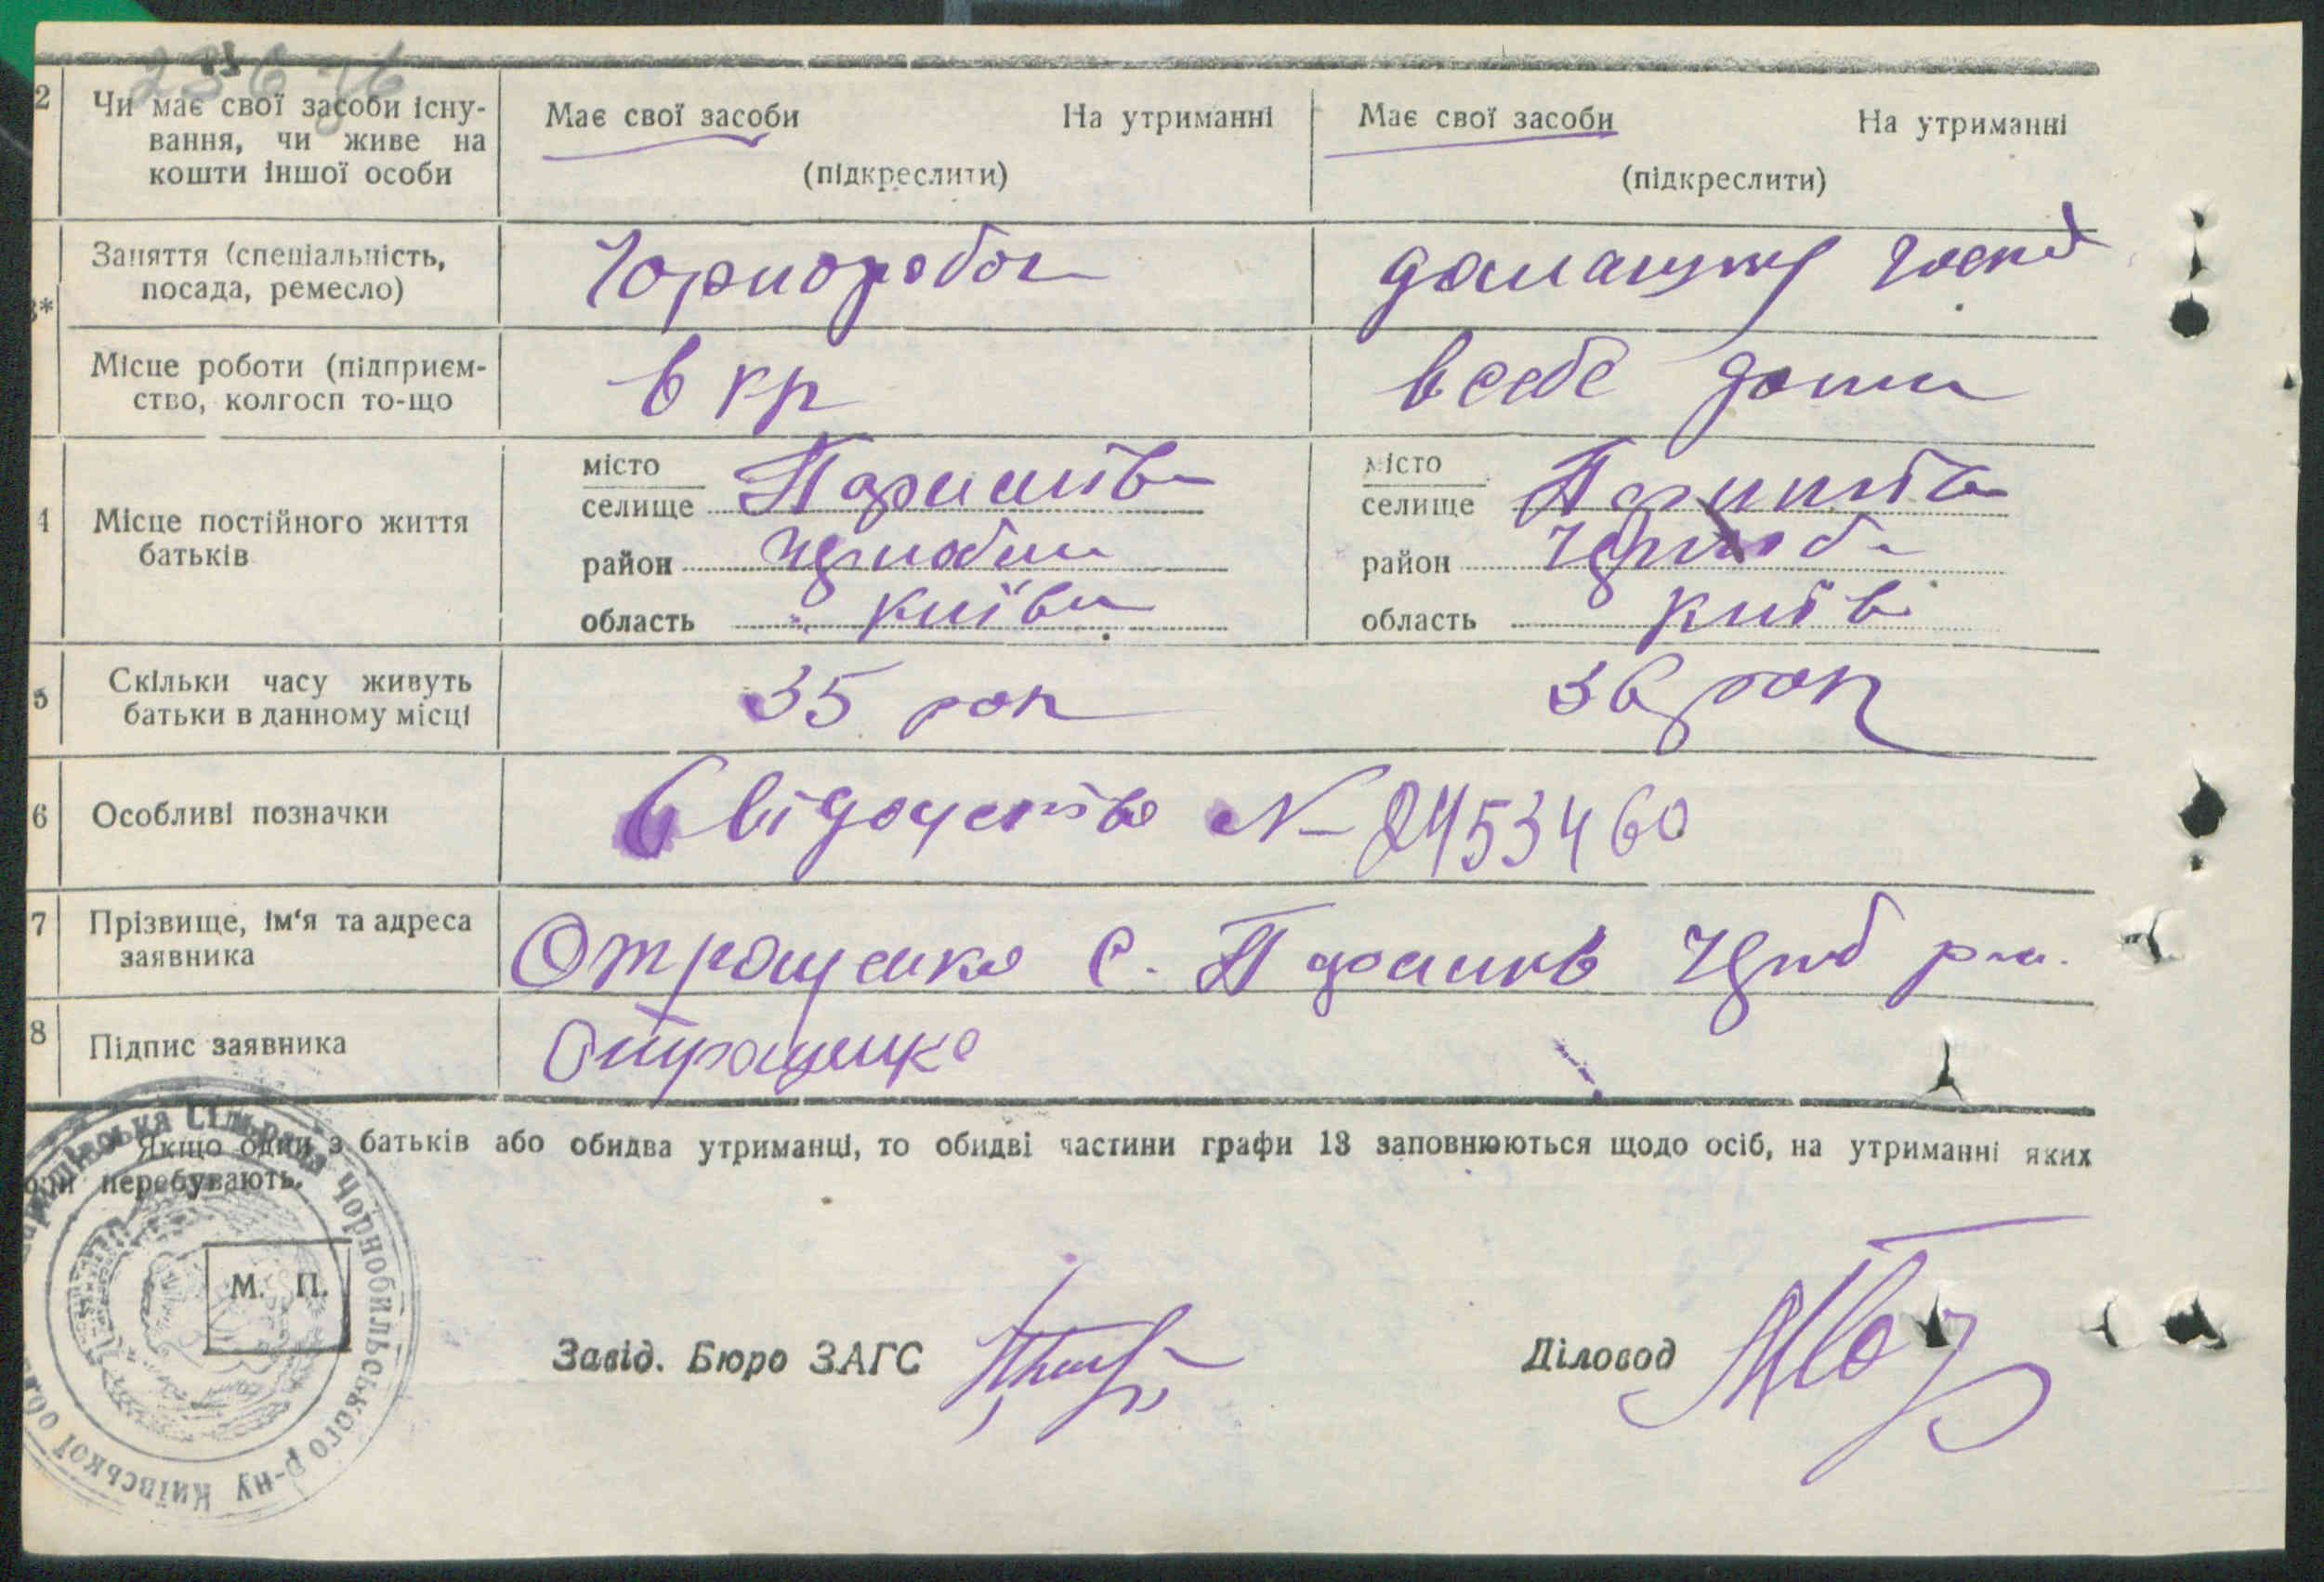 2 Чи має свої засоби існу-
вання, чи живе на
кошти іншої особи
Має свої засоби На утриманні
(підкреслити)
Має свої засоби На утриманні
(підкреслити)
3* Заняття (спеціальність,
посада, ремесло)
Чорнороб
домашнє господ
Місце роботи (підприєм-
ство, колгосп то-що
в
в себе дома
4 Місце постійного життя
батьків
місто
селище Паришів
район Чорнобил
область Київ
місто
селище Паришів
район Чорноб
область Київ
5 Скільки часу живуть
батьки в данному місці
35 рок
36 рок
6 Особливі позначки
Свідоцтво № 2453460
7 Прізвище, ім'я та адреса
заявника
Отрощенко с. Паришів Чрноб р-н.
8 Підпис заявника
Отрощенко
Якщо один з батьків або обидва утриманці, то обидві частини графи 13 заповнюються щодо осіб, на утриманні яких
вони перебувають.
Паришівська сільрада Чорнобильського р-ну Київської обл.
М. П.
Завід. Бюро ЗАГС
Діловод